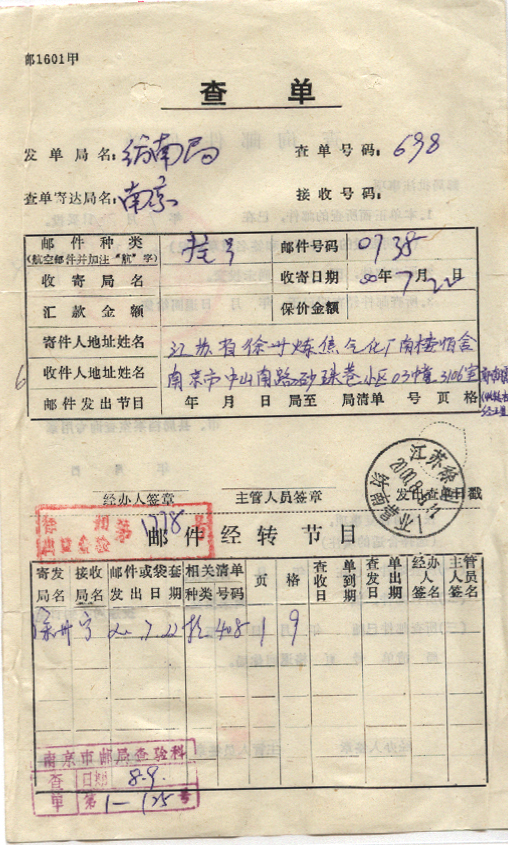 邮1601甲
查单
发单局名：汾南局 查单号码：698
查单寄达局名：南京 接收号码：
邮件种类 挂号 邮件号码 0738
(航空邮件并加注“航”字)
收寄局名 收寄日期 00年7月22日
汇款金额 保价金额
寄件人地址姓名 江苏省徐州炼焦气化厂南楼宿舍
收件人地址姓名 南京市中山南路砂珠巷小区03幢3106室
邮件发出节日 年 月 日 局至 局清单 号 页 格
经办人签章 主管人员签章 发出查单日戳
江苏徐州
2000.8
徐州 第1778号
邮件经转节目
寄发局名 接收局名 邮件或袋套发出日期 相关清单种类号码 页 格 查单收到日期 查单发出日期 经办人签名 主管人员签名
徐州 宁 7.22 挂 408 1 9
南京市邮局查验科
查单 日期 8.9.
第1-125号